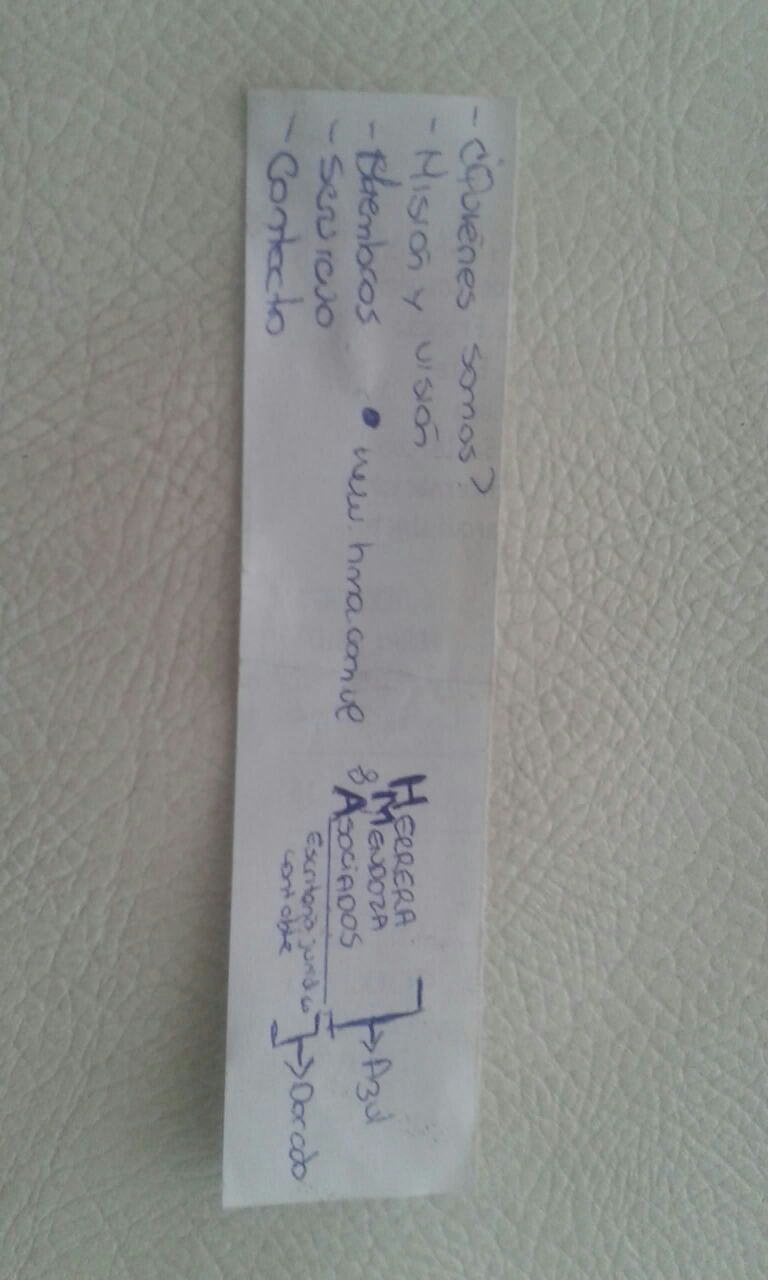 - ¿Quiénes somos?
- Misión y visión
- Miembros
- Servicio
- Contacto
• www.hma.com.ve
HERRERA
MENDOZA
& ASOCIADOS
Escritorio jurídico
contable
Azul
Dorado